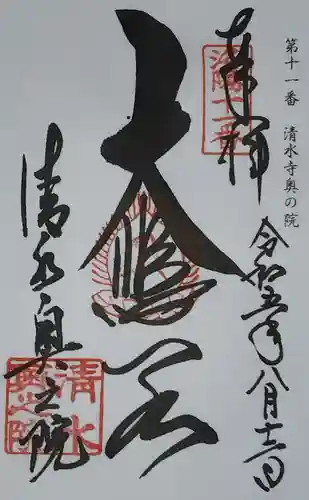 第十一番 清水寺奥の院
奉拝
令和五年八月十三日
大悲閣
清水奥之院
洛陽十一番
清水
奥之院